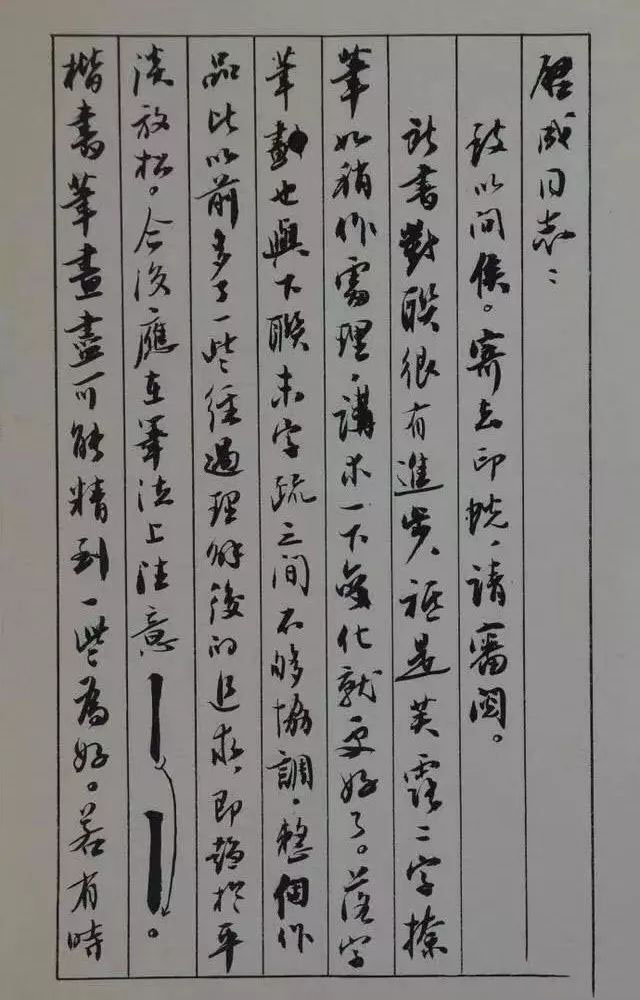 成同志：
致以问候。寄去印蜕，請審阅。
所書對联很有進步，祗是芙露二字捺
筆如稍作處理，講求一下變化就更好了。落字
筆劃也與下联末字疏之間不够協調。整個作
品比以前多了一些經過理解後的追求，即趋於平
淡放松。今後，應在筆法上注意。
楷書筆畫盡可能精到一些為好。若有時